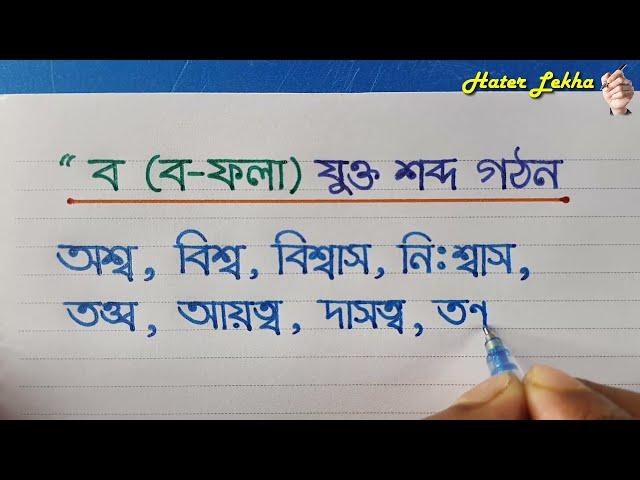 Hater Lekha
“ ব (ব-ফলা) যুক্ত শব্দ গঠন
অশ্ব, বিশ্ব, বিশ্বাস, নিঃশ্বাস,
তত্ত্ব, আয়ত্ব, দাসত্ব,